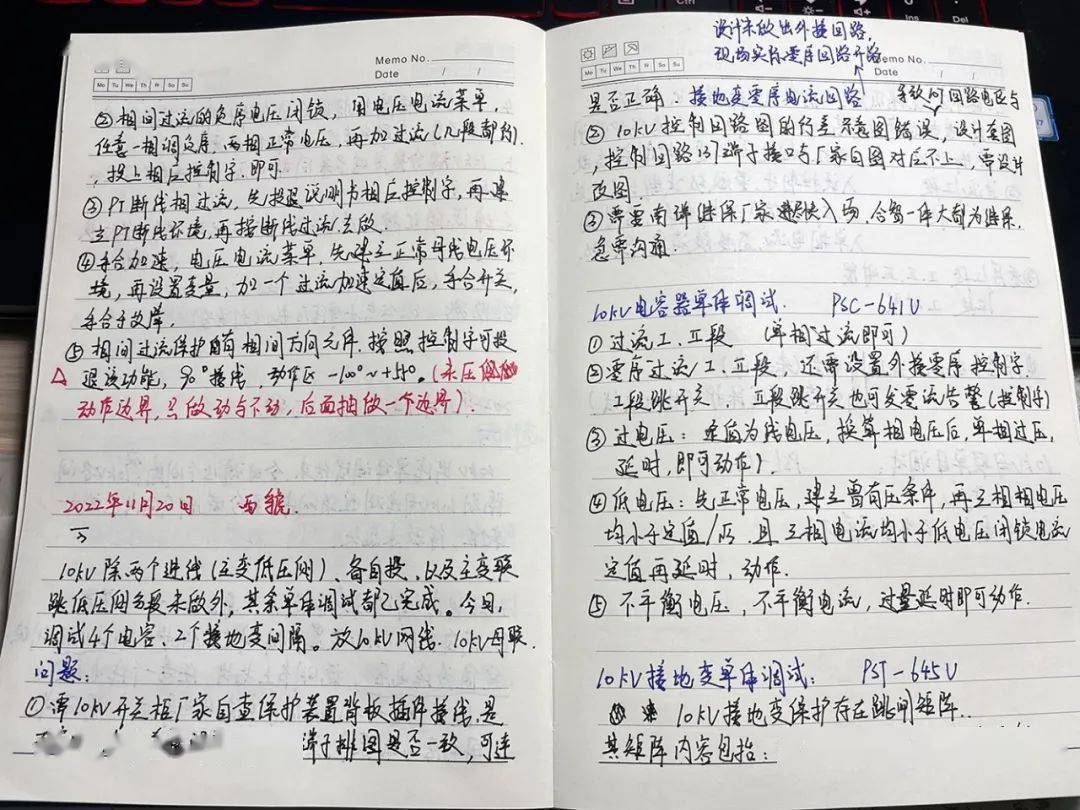 Memo No.
Date / /
Mo Tu We Th Fr Sa Su
②相间过流的负序电压闭锁,用电压电流菜单,
任意一相调负序,两相正常电压,再加过流(几段都行)
,投上相应控制字.即可.
③PT断线相过流,先投退说明书相应控制字,再建
立PT断线环境,再按断线过流去做.
④手合加速,电压电流菜单,先建立正常母线电压环
境,再设置变量,加一个过流加速定值后,手合开关,
手合于故障.
⑤相间过流保护的有相间方向元件.按照控制字可投
退该功能,90°接线,动作区
动作边界,只做动与不动,后面抽做一个边界).
2022年11月20日
10kV除两个进线(主变低压侧)、备自投、以及主变联
跳低压侧未做外,其余单体调试都已完成。今日,
调试4个电容、2个接地变间隔。放10kV网线.10kV母联.
问题:
①需10kV开关柜厂家自查保护装置背板插件接线,是
端子排图是否一致,可连
设计未做出外接回路,
现场实际零序回路开路
Memo No.
Date / /
Mo Tu We Th Fr Sa Su
是否正确.接地变零序电流回路
回路电压与
②10kV控制回路图的行差示意图错误,设计蓝图
,控制回路137端子接口与厂家白图对应不上,需设计
改图.
③需要南瑞继保厂家尽快入场,合智一体大都为继保.
急需沟通.
10kV电容器单体调试. PSC-641U
①过流I.II段 (单相过流即可)
②零序过流I.II段 还需设置外接零序控制字
I段跳开关 II段跳开关也可发零流告警(控制字)
③过电压:定值为线电压,换算相电压后,单相过压,
延时,即可动作).
④低电压:先正常电压,建立曾有压条件,再三相相电压
均小于定值/√3 且三相电流均小于低电压闭锁电流
定值再延时,动作.
⑤不平衡电压,不平衡电流,过量延时即可动作.
10kV接地变单体调试: PST-645U
10kV接地变保护存在跳闸矩阵..
其矩阵内容包括: